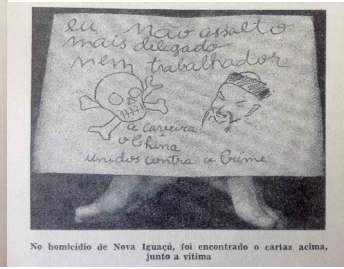 eu não assalto
mais delegado
nem trabalhador
a caveira
o China
unidos contra o Crime
No homicídio de Nova Iguaçú, foi encontrado o cartaz acima,
junto a vítima